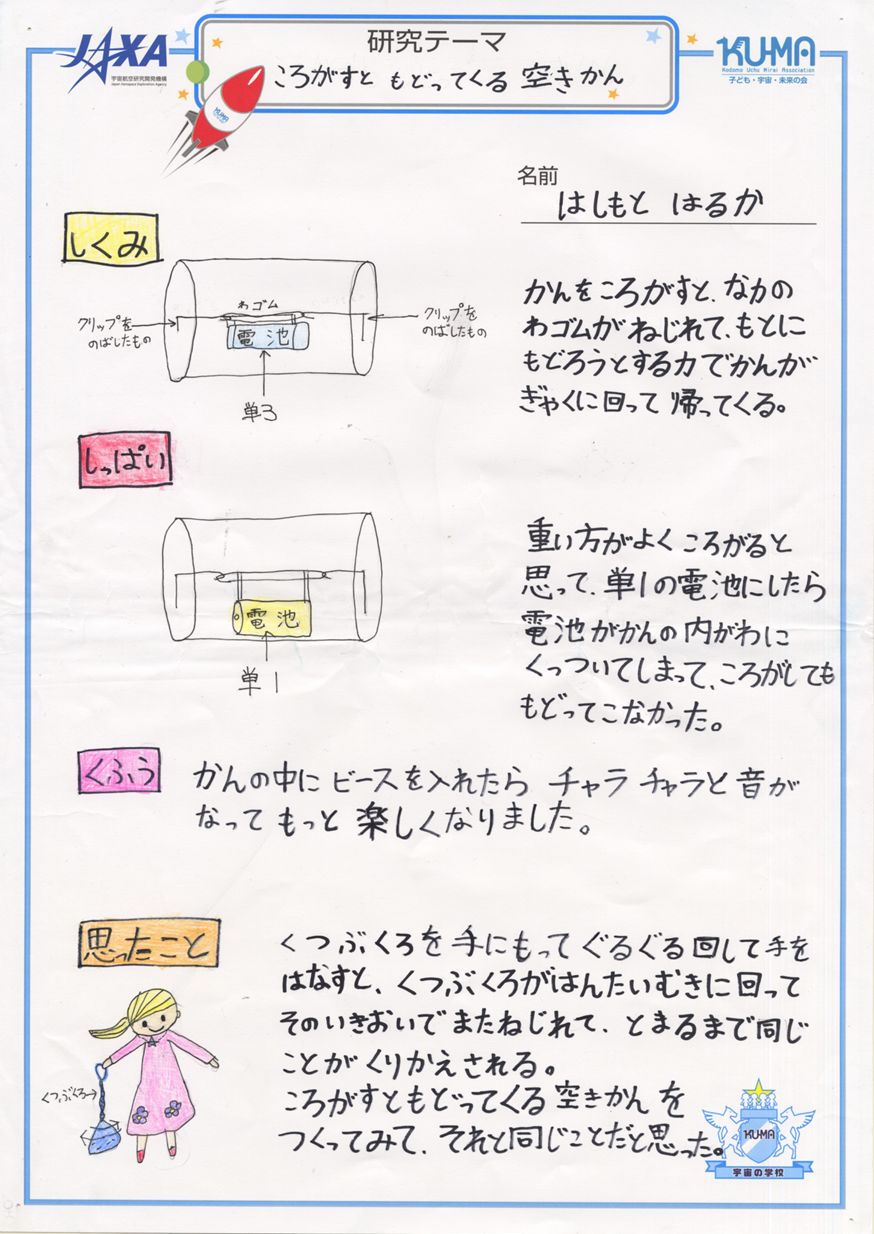 JAXA
宇宙航空研究開発機構
Japan Aerospace Exploration Agency
研究テーマ
ころがすと もどってくる 空きかん
KU-MA
Kodomo Uchu Mirai Association
子ども・宇宙・未来の会
KU-MA
名前
はしもと はるか
しくみ
クリップを
のばしたもの
わゴム
電池
単3
クリップを
のばしたもの
かんをころがすと、なかの
わゴムがねじれて、もとに
もどろうとする力でかんが
ぎゃくに回って帰ってくる。
しっぱい
電池
単1
重い方がよくころがると
思って、単1の電池にしたら
電池がかんの内がわに
くっついてしまって、ころがしても
もどってこなかった。
くふう
かんの中にビースを入れたら チャラチャラと音が
なってもっと楽しくなりました。
思ったこと
くつぶくろを手にもってぐるぐる回して手を
はなすと、くつぶくろがはんたいむきに回って
そのいきおいでまたねじれて、とまるまで同じ
ことがくりかえされる。
ころがすともどってくる空きかんを
つくってみて、それと同じことだと思った。
くつぶくろ
KU-MA
宇宙の学校